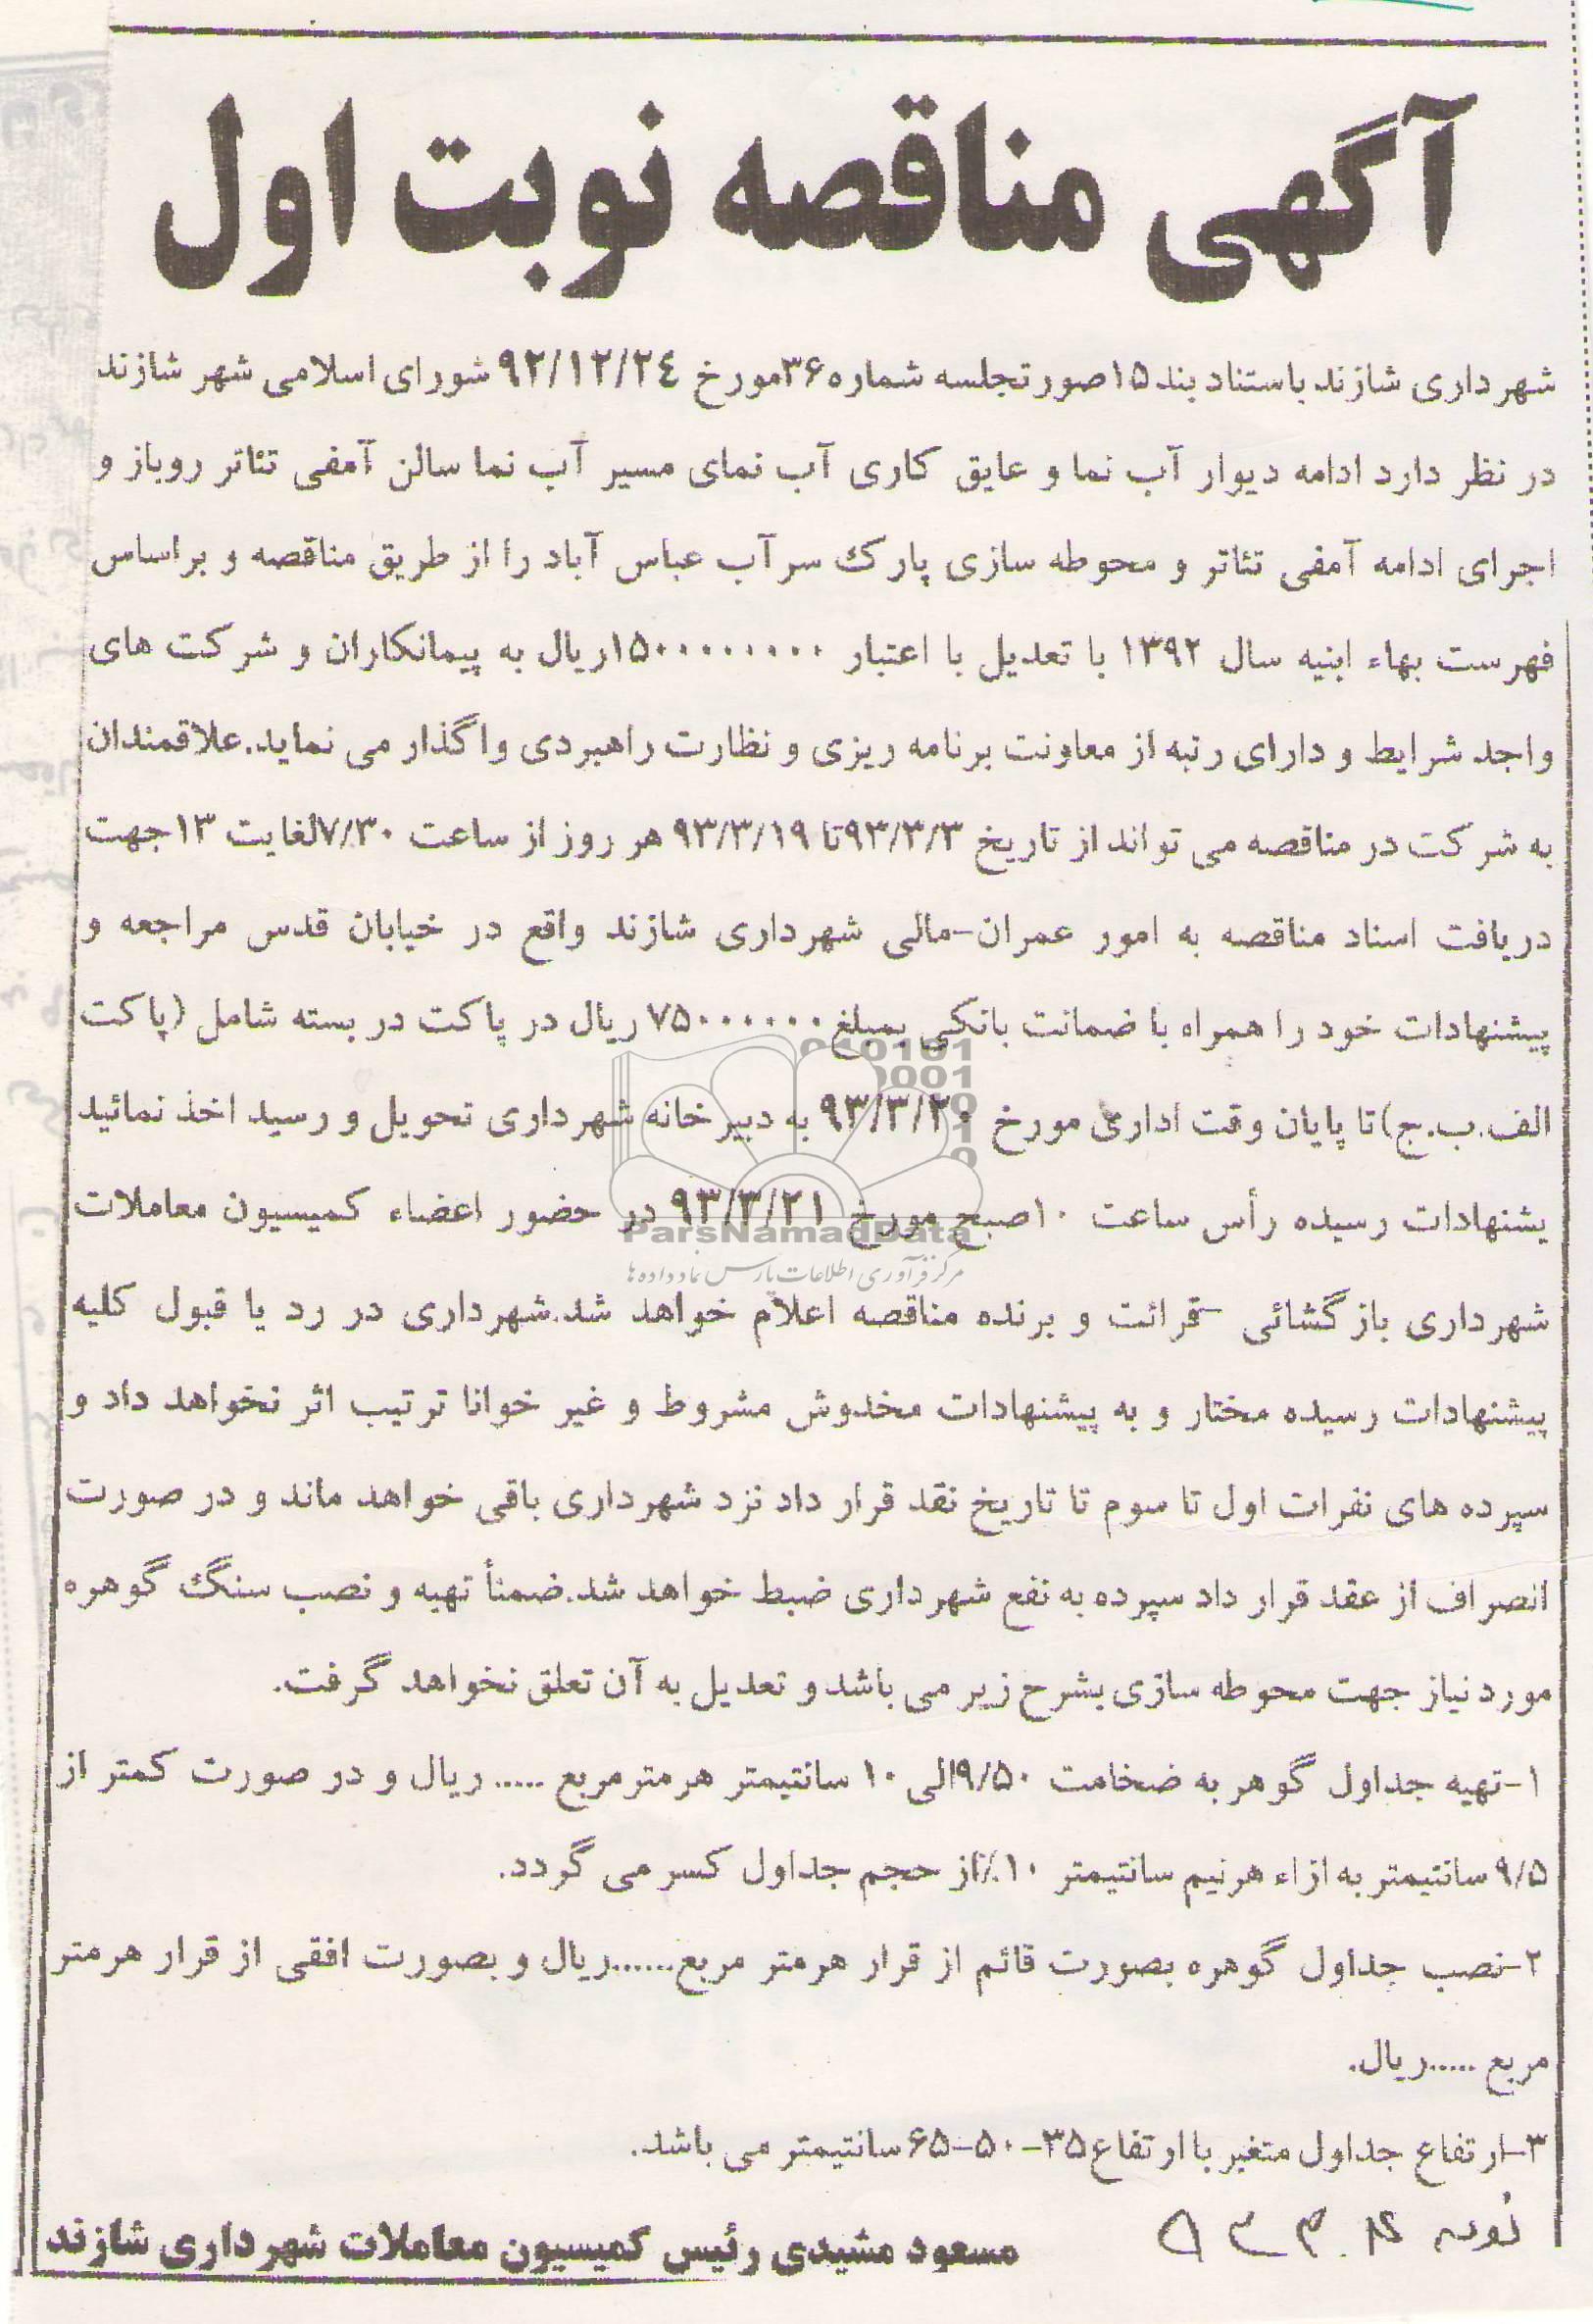 آگهی مناقصه نوبت اول
شهرداری شازند باستناد بند ۱۵صورتجلسه شماره ۳۶مورخ ۹۲/۱۲/۲۴ شورای اسلامی شهر شازند
در نظر دارد ادامه دیوار آب نما و عایق کاری آب نمای مسیر آب نما سالن آمفی تئاتر روباز و
اجرای ادامه آمفی تئاتر و محوطه سازی پارک سرآب عباس آباد را از طریق مناقصه و براساس
فهرست بهاء ابنیه سال ۱۳۹۲ با تعدیل با اعتبار ۱۵۰۰۰۰۰۰۰۰۰ریال به پیمانکاران و شرکت های
واجد شرایط و دارای رتبه از معاونت برنامه ریزی و نظارت راهبردی واگذار می نماید.علاقمندان
به شرکت در مناقصه می تواند از تاریخ ۹۳/۳/۳تا ۹۳/۳/۱۹ هر روز از ساعت ۷/۳۰لغایت ۱۳جهت
دریافت اسناد مناقصه به امور عمران-مالی شهرداری شازند واقع در خیابان قدس مراجعه و
پیشنهادات خود را همراه با ضمانت بانکی بمبلغ ۷۵۰۰۰۰۰۰۰ ریال در پاکت در بسته شامل (پاکت
الف.ب.ج)تا پایان وقت اداری مورخ ۹۳/۳/۲۰ به دبیرخانه شهرداری تحویل و رسید اخذ نمائید
یشنهادات رسیده رأس ساعت ۱۰صبح مورخ ۹۳/۳/۲۱ در حضور اعضاء کمیسیون معاملات
ParsNamadData
مرکز فرآوری اطلاعات پارس نماد داده ها
شهرداری بازگشائی -قرائت و برنده مناقصه اعلام خواهد شد.شهرداری در رد یا قبول کلیه
پیشنهادات رسیده مختار و به پیشنهادات مخدوش مشروط و غیر خوانا ترتیب اثر نخواهد داد و
سپرده های نفرات اول تا سوم تا تاریخ نقد قرار داد نزد شهرداری باقی خواهد ماند و در صورت
انصراف از عقد قرار داد سپرده به نفع شهرداری ضبط خواهد شد.ضمنأ تهیه و نصب سنگ گوهره
مورد نیاز جهت محوطه سازی بشرح زیر می باشد و تعدیل به آن تعلق نخواهد گرفت.
۱-تهیه جداول گوهر به ضخامت ۹/۵۰الی ۱۰ سانتیمتر هرمترمربع ..... ریال و در صورت کمتر از
۹/۵ سانتیمتر به ازاء هرنیم سانتیمتر ۱۰٪از حجم جداول کسر می گردد.
۲-نصب جداول گوهره بصورت قائم از قرار هرمتر مربع......ریال و بصورت افقی از قرار هرمتر
مربع .....ریال.
۳-ارتفاع جداول متغیر با ارتفاع ۳۵-۵۰-۶۵سانتیمتر می باشد.
مسعود مشیدی رئیس کمیسیون معاملات شهرداری شازند